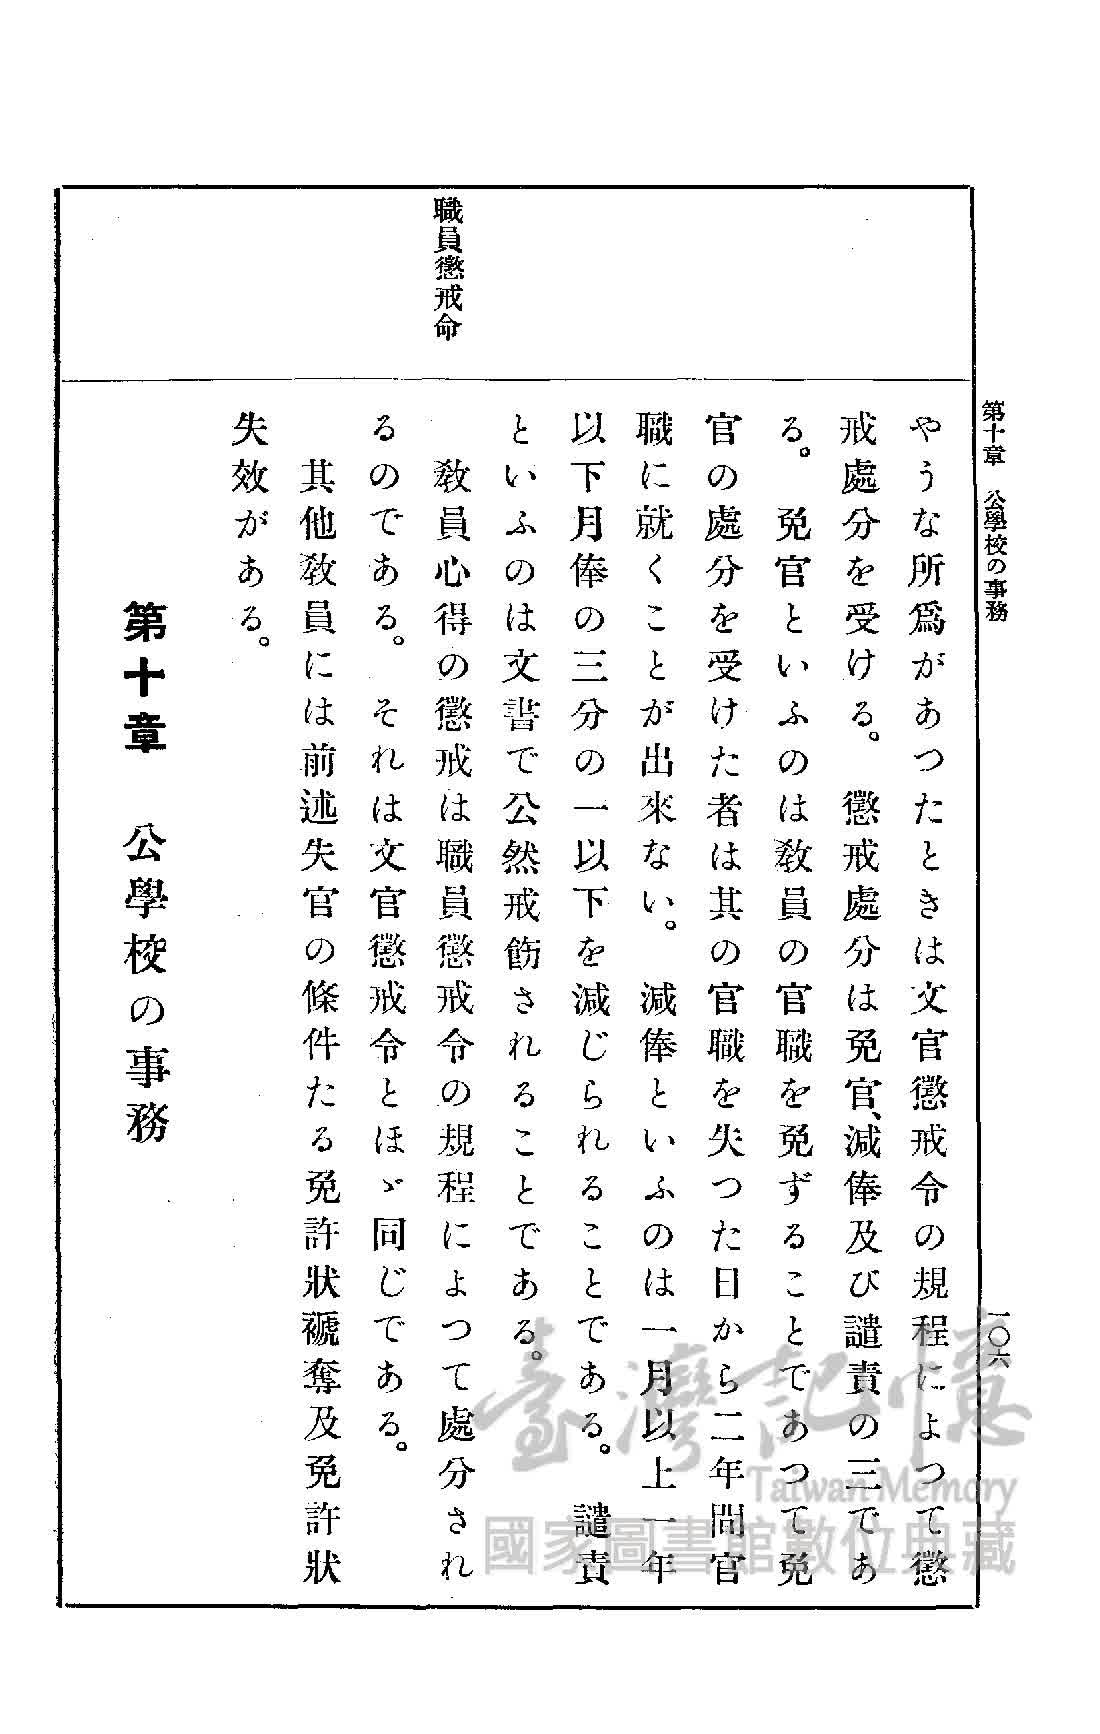 第十章　公學校の事務
一〇六
職員懲戒命
やうな所爲があつたときは文官懲戒令の規程によつて懲
戒處分を受ける。　懲戒處分は免官、減俸及び譴責の三であ
る。　免官といふのは敎員の官職を免ずることであつて免
官の處分を受けた者は其の官職を失つた日から二年間官
職に就くことが出來ない。　減俸といふのは一月以上一年
以下月俸の三分の一以下を減じられることである。　譴責
といふのは文書で公然戒飭されることである。
　敎員心得の懲戒は職員懲戒令の規程によつて處分され
るのである。　それは文官懲戒令とほゞ同じである。
　其他敎員には前述失官の條件たる免許狀褫奪及免許狀
失效がある。
第十章　公學校の事務
臺灣記憶
Taiwan Memory
國家圖書館數位典藏